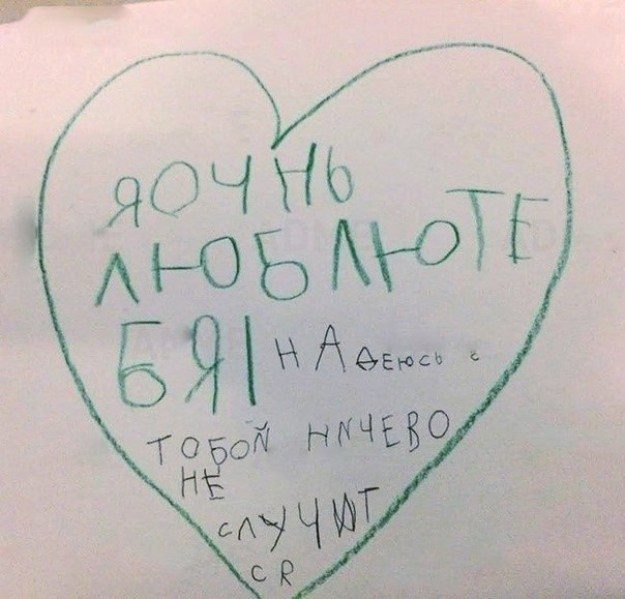 Я ОЧНЬ
ЛЮБЛЮ ТЕ
БЯ! НАДЕЮСЬ С
ТОБОЙ НИЧЕВО
НЕ
СЛУЧИТ
СЯ